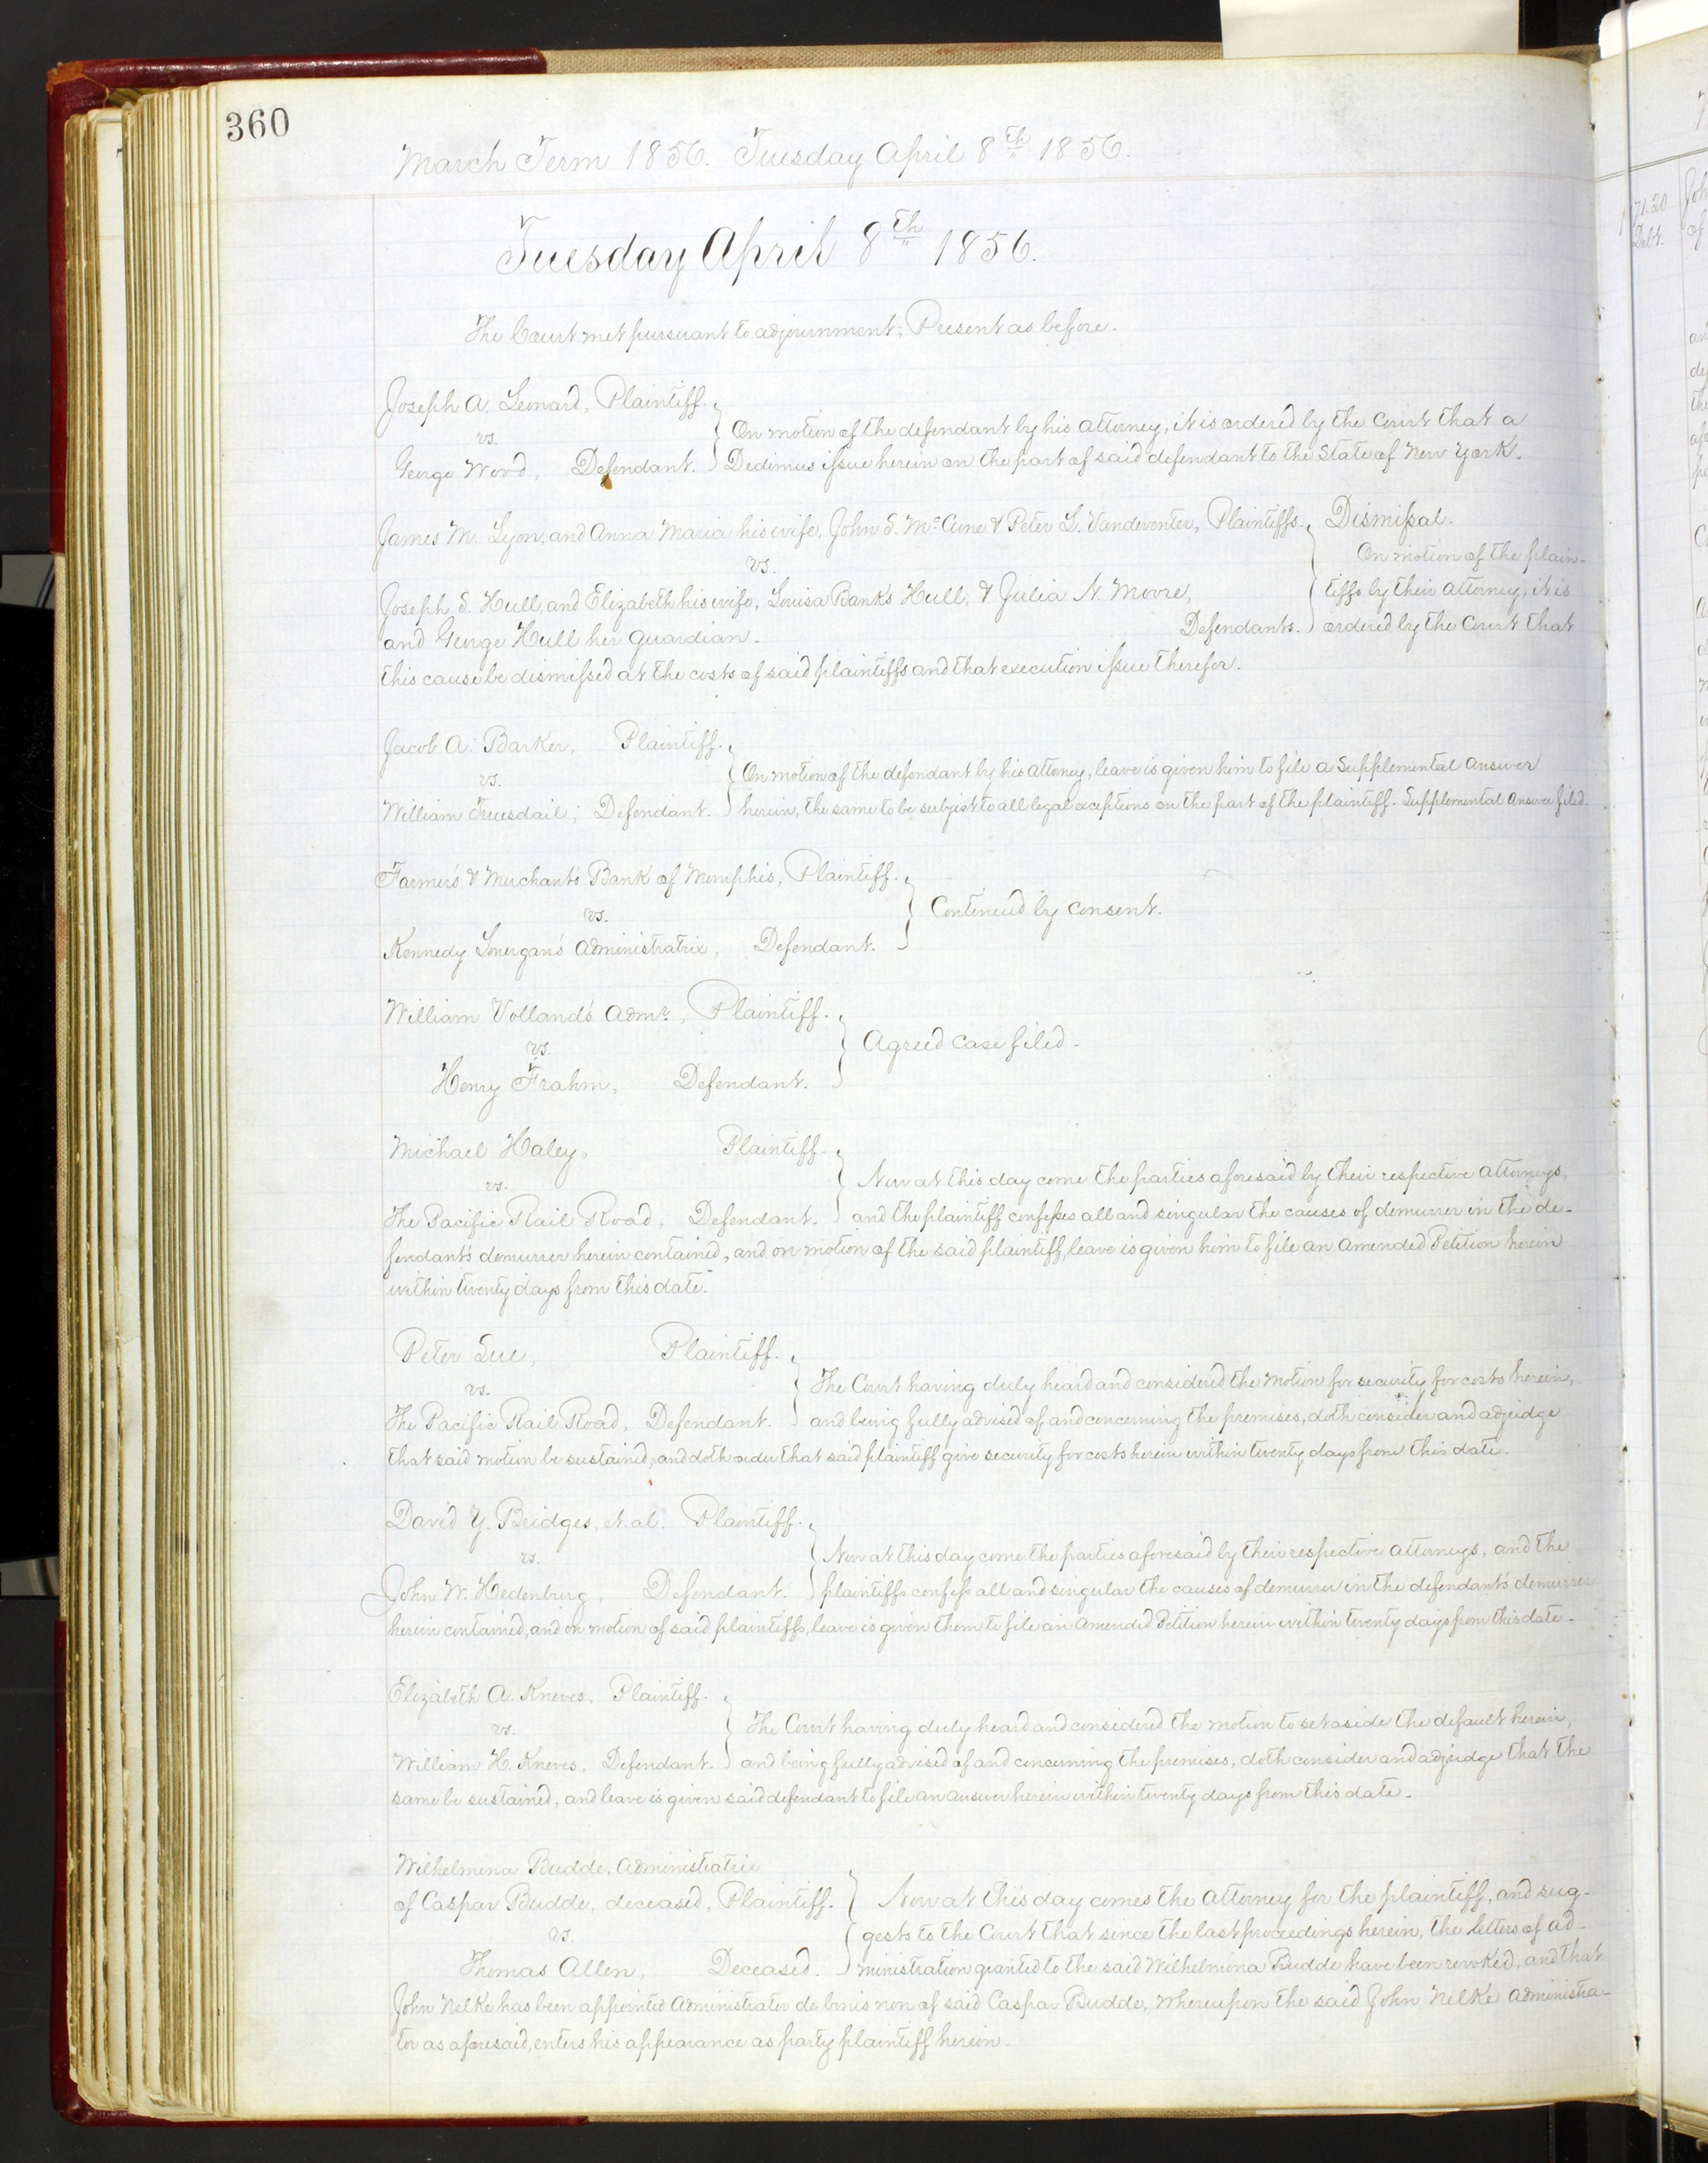 360
March Term 1856. Tuesday April 8th 1856.
Tuesday April 8th 1856.
The Court met pursuant to adjournment; Present as before.
Joseph A. Leonard, Plaintiff.
vs.
George Wood, Defendant.
On motion of the defendant by his attorney, it is ordered by the Court that a
Dedimus issue herein on the part of said defendant to the State of New York.
James M. Lyon, and Anna Maria his wife, John S. McCune & Peter L. Vandeventer, Plaintiffs.
vs.
Joseph S. Hull, and Elizabeth his wife, Louisa Banks Hull, & Julia N. Moore,
and George Hull her guardian. Defendants.
Dismissal.
On motion of the plain-
tiffs by their attorney, it is
ordered by the Court that
this cause be dismissed at the costs of said plaintiffs and that execution issue therefor.
Jacob A. Barker, Plaintiff.
vs.
William Truesdail, Defendant.
On motion of the defendant by his attorney, leave is given him to file a Supplemental Answer
herein, the same to be subject to all legal exceptions on the part of the plaintiff. Supplemental Answer filed.
Farmer's & Merchant's Bank of Memphis, Plaintiff.
vs.
Kennedy Lonergan's Administratrix, Defendant.
Continued by Consent.
William Volland's Admr., Plaintiff.
vs.
Henry Frahm, Defendant.
Agreed Case filed.
Michael Haley, Plaintiff.
vs.
The Pacific Rail Road, Defendant.
Now at this day come the parties aforesaid by their respective attorneys,
and the plaintiff confesses all and singular the causes of demurrer in the de-
fendant's demurrer herein contained, and on motion of the said plaintiff, leave is given him to file an amended Petition herein
within twenty days from this date.
Peter Lue, Plaintiff.
vs.
The Pacific Rail Road, Defendant.
The Court having duly heard and considered the motion for security for costs herein,
and being fully advised of and concerning the premises, doth consider and adjudge
that said motion be sustained, and doth order that said plaintiff give security for costs herein within twenty days from this date.
David Y. Bridges, et. al. Plaintiff.
vs.
John W. Hedenburg, Defendant.
Now at this day come the parties aforesaid by their respective attorneys, and the
plaintiffs confess all and singular the causes of demurrer in the defendant's demurrer
herein contained, and on motion of said plaintiffs, leave is given them to file an amended Petition herein within twenty days from this date.
Elizabeth A. Kneves, Plaintiff.
vs.
William H. Kneves, Defendant.
The Court having duly heard and considered the motion to set aside the default herein,
and being fully advised of and concerning the premises, doth consider and adjudge that the
same be sustained, and leave is given said defendant to file an answer herein within twenty days from this date.
Wilhelmina Budde, Administratrix
of Caspar Budde, deceased, Plaintiff.
vs.
Thomas Allen, Deceased.
Now at this day comes the attorney for the plaintiff, and sug-
gests to the Court that since the last proceedings herein, the letters of ad-
ministration granted to the said Wilhelmina Budde have been revoked, and that
John Nelke has been appointed Administrator de bonis non of said Caspar Budde, whereupon the said John Nelke administra-
tor as aforesaid, enters his appearance as party plaintiff herein.
71.20
Debt.